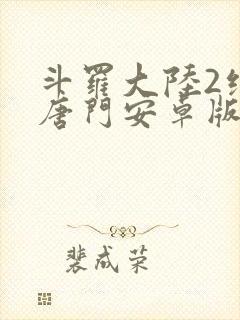 斗羅大陸2
唐門安卓版
裴成荣